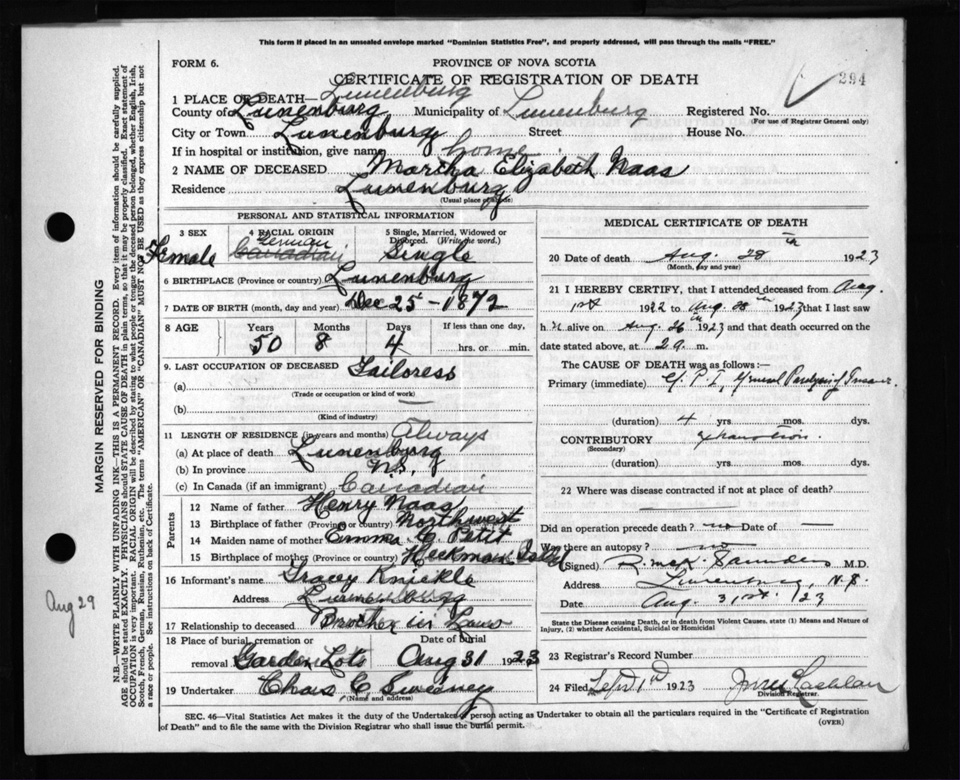 This form if placed in an unsealed envelope marked "Dominion Statistics Free", and properly addressed, will pass through the mails "FREE."
FORM 6.
PROVINCE OF NOVA SCOTIA
294
CERTIFICATE OF REGISTRATION OF DEATH
1 PLACE OF DEATH— Lunenburg
County of Lunenburg Municipality of Lunenburg Registered No.
(For use of Registrar General only)
City or Town Lunenburg Street House No.
If in hospital or institution, give name home
2 NAME OF DECEASED Martha Elizabeth Naas
Residence Lunenburg
(Usual place of abode)
PERSONAL AND STATISTICAL INFORMATION
3 SEX 4 RACIAL ORIGIN 5 Single, Married, Widowed or Divorced. (Write the word.)
Female German Canadian Single
6 BIRTHPLACE (Province or country) Lunenburg
7 DATE OF BIRTH (month, day and year) Dec 25 - 1872
8 AGE Years Months Days If less than one day,
50 8 4 hrs. or min.
9. LAST OCCUPATION OF DECEASED Tailoress
(a)
(Trade or occupation or kind of work)
(b)
(Kind of industry)
11 LENGTH OF RESIDENCE (in years and months) Always
(a) At place of death Lunenburg
(b) In province N.S.
(c) In Canada (if an immigrant) Canadian
Parents
12 Name of father Henry Naas
13 Birthplace of father (Province or country) Northwest
14 Maiden name of mother Emma C. Petit
15 Birthplace of mother (Province or country) Heckmans Island
16 Informant's name Tracey Knickle
Address Lunenburg
17 Relationship to deceased Brother in Law
18 Place of burial, cremation or removal Garden Lots Date of burial Aug 31 1923
19 Undertaker Chas C. Sweeney
(Name and address)
MEDICAL CERTIFICATE OF DEATH
20 Date of death Aug. 28th 1923
(Month, day and year)
21 I HEREBY CERTIFY, that I attended deceased from Aug.
1st 1922 to Aug 28th 1923 that I last saw
h alive on Aug. 26th 1923 and that death occurred on the
date stated above, at m.
The CAUSE OF DEATH was as follows:
Primary (immediate) G. P. I, General Paralysis of Insane.
(duration) 4 yrs mos. dys.
CONTRIBUTORY exhaustion.
(Secondary)
(duration) yrs mos. dys.
22 Where was disease contracted if not at place of death?
Did an operation precede death? no Date of —
Was there an autopsy? no
(Signed) Saunders M.D.
Address Lunenburg, N.S.
Date Aug. 31st. '23
State the Disease causing Death, or in death from Violent Causes, state (1) Means and Nature of Injury, (2) whether Accidental, Suicidal or Homicidal
23 Registrar's Record Number
24 Filed Sept 1st 1923
Division Registrar.
SEC. 46—Vital Statistics Act makes it the duty of the Undertaker or person acting as Undertaker to obtain all the particulars required in the "Certificate of Registration of Death" and to file the same with the Division Registrar who shall issue the burial permit.
(OVER)
MARGIN RESERVED FOR BINDING
N.B.—WRITE PLAINLY WITH UNFADING INK—THIS IS A PERMANENT RECORD. Every item of information should be carefully supplied.
AGE should be stated EXACTLY. PHYSICIANS should STATE CAUSE OF DEATH in plain terms, so that it may be properly classified. Exact statement of
OCCUPATION is very important. RACIAL ORIGIN will be described by stating to what people or tongue the deceased person belonged, whether English, Irish,
Scotch, French, German, Russian, Ruthenian, etc. The terms "AMERICAN" OR "CANADIAN" MUST NOT BE USED as they express citizenship but not
a race or people. See instructions on back of Certificate.
Aug 29